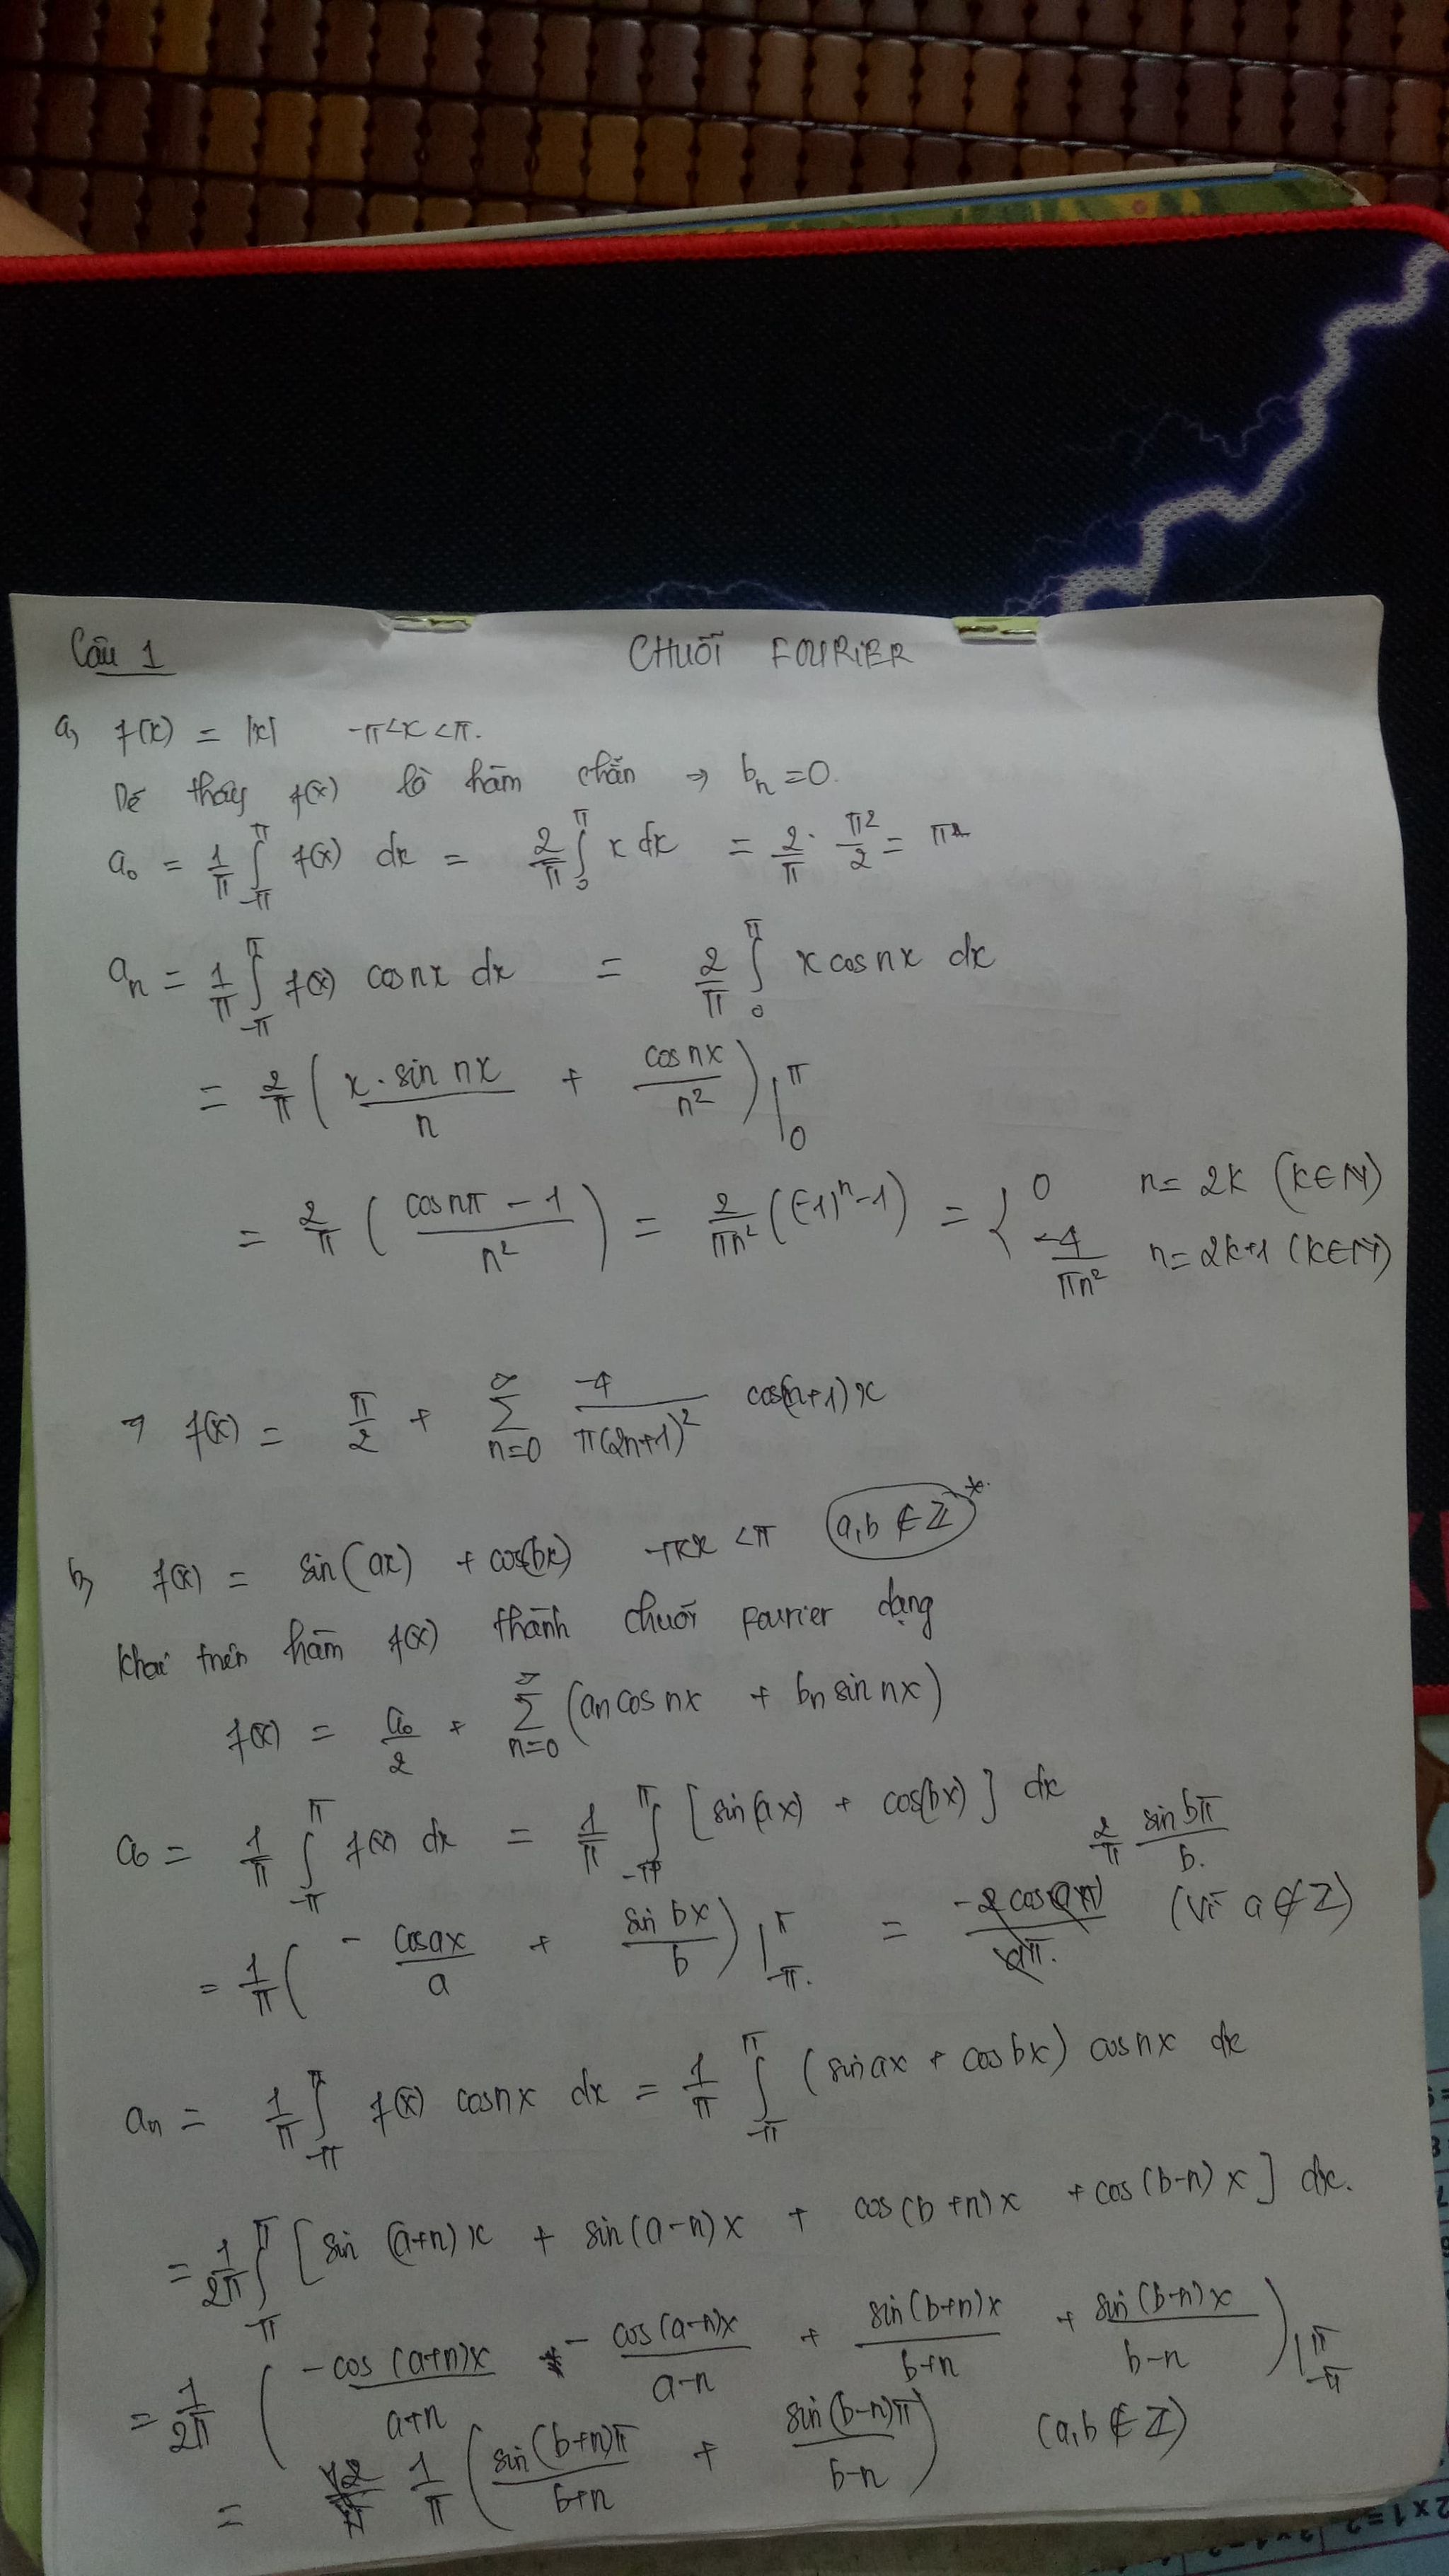 Câu 1 CHUỖI FOURIER
a, f(x) = |x| -π<x<π.
Dễ thấy f(x) là hàm chẵn → bₙ = 0.
a₀ = 1/π ∫_{-π}^{π} f(x) dx = 2/π ∫_0^π x dx = 2/π · π²/2 = π
aₙ = 1/π ∫_{-π}^{π} f(x) cosnx dx = 2/π ∫_0^π x cosnx dx
= 2/π ( x.sin nx / n + cosnx / n² ) |_0^π
= 2/π ( (cosnπ - 1) / n² ) = 2/(πn²) ((-1)ⁿ - 1) = { 0 n = 2k (k∈N)
-4/(πn²) n = 2k+1 (k∈N)
→ f(x) = π/2 + ∑_{n=0}^∞ -4 / (π(2n+1)²) cos(n+1)x
b, f(x) = sin(ax) + cos(bx) -π<x<π (a,b ∉ Z)*
Khai triển hàm f(x) thành chuỗi Fourier dạng
f(x) = a₀/2 + ∑_{n=0}^∞ (aₙ cosnx + bₙ sin nx)
a₀ = 1/π ∫_{-π}^{π} f(x) dx = 1/π ∫_{-π}^{π} [sin(ax) + cos(bx)] dx
2/π sin bπ / b.
= 1/π ( - cosax / a + sin bx / b ) |_{-π}^{π} = (vì a∉Z)
aₙ = 1/π ∫_{-π}^{π} f(x) cosnx dx = 1/π ∫_{-π}^{π} (sinax + cosbx) cosnx dx
= 1/2π ∫_{-π}^{π} [sin (a+n)x + sin(a-n)x + cos(b+n)x + cos(b-n)x] dx.
= 1/2π ( -cos(a+n)x / (a+n) - cos(a-n)x / (a-n) + sin(b+n)x / (b+n) + sin(b-n)x / (b-n) ) |_{-π}^{π}
= 1/π ( sin(b+n)π / (b+n) + sin(b-n)π / (b-n) ) (a,b ∉ Z)
2x1=2